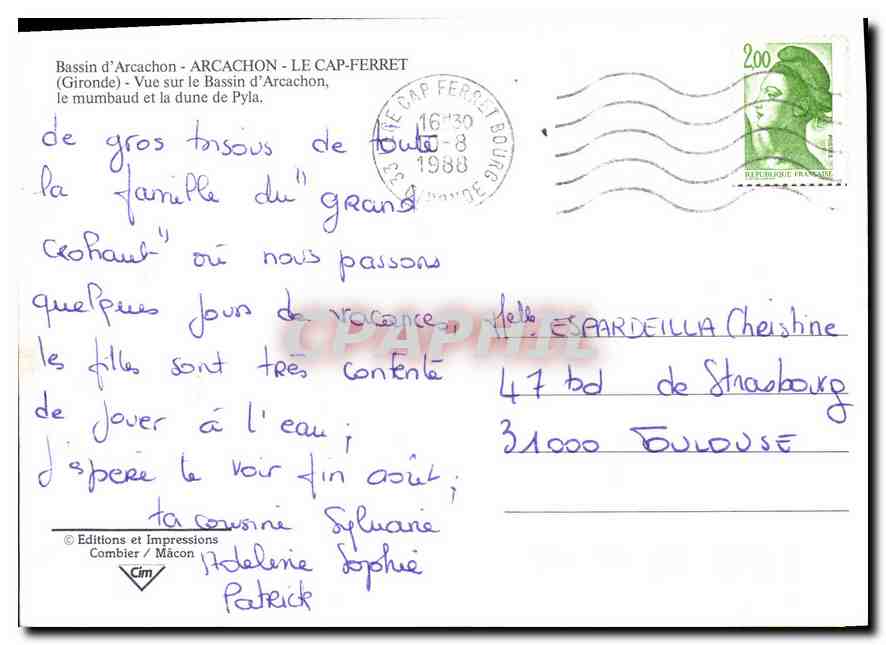 Bassin d'Arcachon - ARCACHON - LE CAP-FERRET
(Gironde) - Vue sur le Bassin d'Arcachon,
le mumbaud et la dune de Pyla.
de gros bisous de toute
la famille du "GRAND
CROHAUT" où nous passons
quelques jours de vacances,
les filles sont TRÈS contente
de jouer à l'eau ;
J'espère te voir fin août ;
ta cousine Sylvaine
Adeline Sophie
Patrick
© Editions et Impressions
Combier / Mâcon
Cim
CAP FERRET BOURG
33
16H30
-8
1988
2,00
POSTES
REPUBLIQUE FRANÇAISE
CPAPHIL
Melle ESPARDEILLA Christine
47 bd de Strasbourg
31000 TOULOUSE